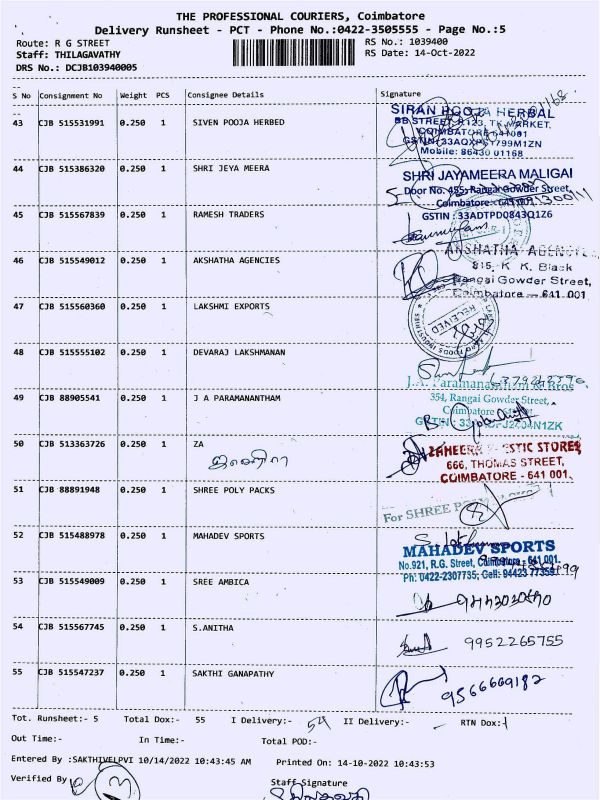 THE PROFESSIONAL COURIERS, Coimbatore
Delivery Runsheet - PCT - Phone No.:0422-3505555 - Page No.:5
Route: R G STREET
RS No.: 1039400
Staff: THILAGAVATHY
RS Date: 14-Oct-2022
DRS No.: DCJB103940005
S No Consignment No Weight PCS Consignee Details Signature
43 CJB 515531991 0.250 1 SIVEN POOJA HERBED
SIRAN POOJA HERBAL
COIMBATORE 641001
Mobile: 86430 01168
44 CJB 515386320 0.250 1 SHRI JEYA MEERA
SHRI JAYAMEERA MALIGAI
Door No. 455, Rangai Gowder Street,
Coimbatore - 641 001
GSTIN : 33ADTPD0843Q1Z6
45 CJB 515567839 0.250 1 RAMESH TRADERS
46 CJB 515549012 0.250 1 AKSHATHA AGENCIES
AKSHATHA AGENCIES
815, K. K. Block
Rangai Gowder Street,
Coimbatore - 641 001
47 CJB 515560360 0.250 1 LAKSHMI EXPORTS
RECEIVED
48 CJB 515555102 0.250 1 DEVARAJ LAKSHMANAN
49 CJB 88905541 0.250 1 J A PARAMANANTHAM
J.A. Paramanantham & Bros
354, Rangai Gowder Street,
50 CJB 513363726 0.250 1 ZA
STIC STORES
666, THOMAS STREET,
COIMBATORE - 641 001.
51 CJB 88891948 0.250 1 SHREE POLY PACKS
For SHREE
52 CJB 515488978 0.250 1 MAHADEV SPORTS
MAHADEV SPORTS
No.921, R.G. Street, Coimbatore - 641 001.
Ph: 0422-2307735, Cell: 94423 77359
53 CJB 515549009 0.250 1 SREE AMBICA
54 CJB 515567745 0.250 1 S.ANITHA
9952265755
55 CJB 515547237 0.250 1 SAKTHI GANAPATHY
9566669182
Tot. Runsheet:- 5 Total Dox:- 55 I Delivery:- 54 II Delivery:- RTN Dox:- 1
Out Time:- In Time:- Total POD:-
Entered By :SAKTHIVELPVI 10/14/2022 10:43:45 AM Printed On: 14-10-2022 10:43:53
Verified By
Staff Signature